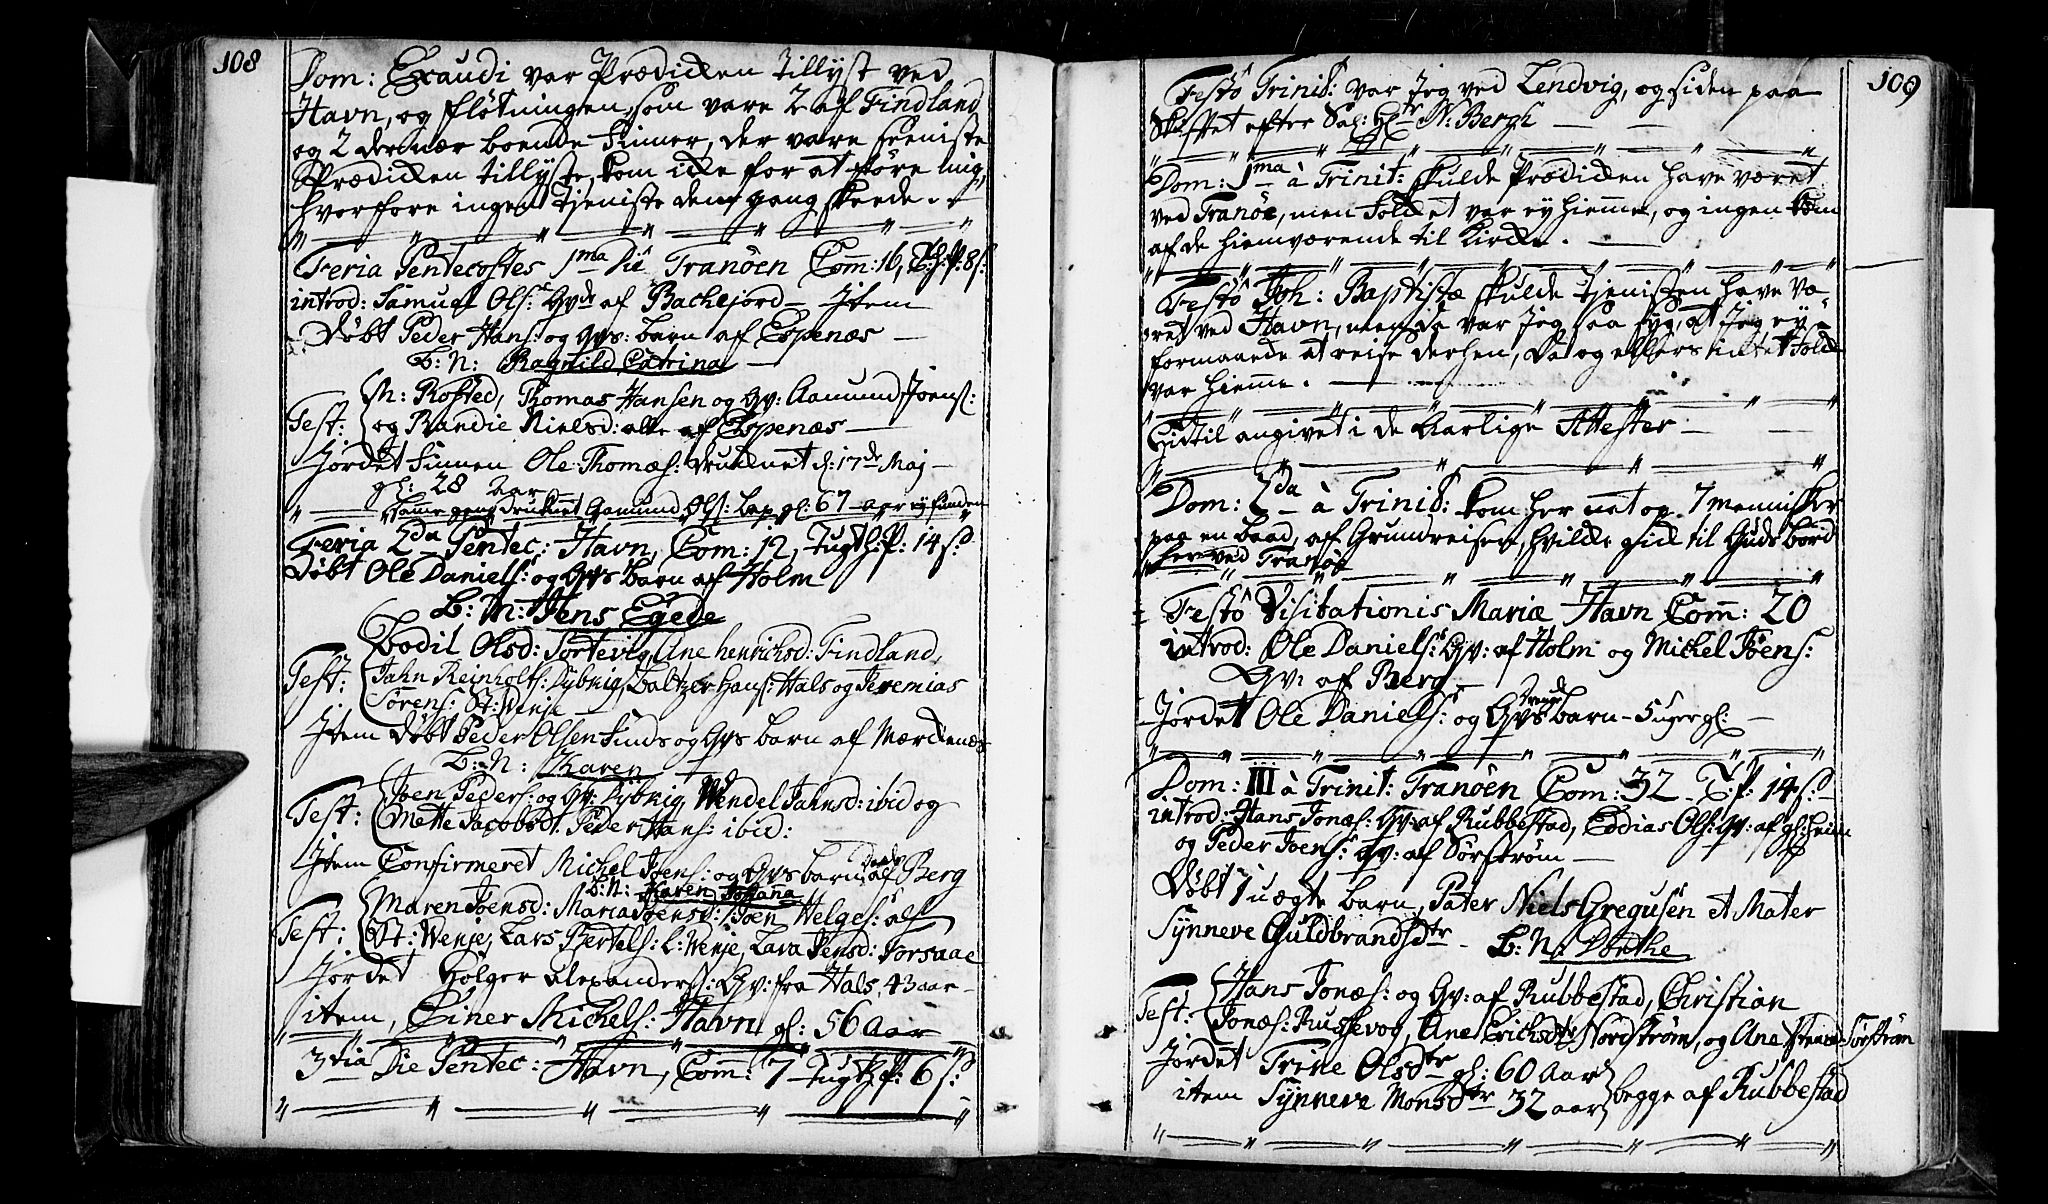 108
Dom: Exaudi var Prædicken tillyst ved
Havn, og Fløtningen, som vare 2 af Findland
og 2 der nær boende Finner, der vare seeniste
Prædicken tillyste, kom icke for at føre mig,
hvorfore ingen tjeniste dem gang skeede.
Feria Pentecostes 1ma Die Tranöen Com: 16, T:H:P: 8 s:
introd: Samuel Ols: Qvde af Bachejord - Item
Döbt Peder Hans: og Qvs: barn af Espenæs
B: N: Ragnild Catrina
Test: M: Rosted, Thomas Hansen og Qv: Aamund Joens:
og Randie Nielsd: alle af Espenæs
Jordet Finnen Ole Thomæs: drucknet d: 17de Maj
gl: 28 Aar
Samme gang drucknet Aamund Ols: Lap gl: 67 - er ey funden
Feria 2da Pentec: Havn, Com: 12, Tugth: P: 14 s:
Döbt Ole Daniels: og Qvs barn af Holm
B: N: Jens Egede
Test: Bodil Olsd: Sortevig, Ane Henrichsd: Findland,
Jahn Reinholts: Dybvig, Baltzer Hans: Hals og Jeremias
Sörens: St: Wenje
Item döbt Peder Olsen Sunds og Qvs barn af Mærckenæs
B: N: Karen
Test: Joen Peders: og Qv: Dybvig, Wendel Jahnsd: ibid og
Mette Jacobsdt. Peder Hans: ibid:
Item Confirmeret Michel Joens: og Qvs barn af Berg
B: N: Karen Johana
Test: Maren Joensd: Maria Joensd: Joen Helges: alle
St: Wenje, Lars Bertels: L: Wenje, Lava Jensd: Forsaae
Jordet Holger Alexanders: Qv: fra Hals, 43 aar
item, Einer Michels: Havn gl: 56 Aar
3tia Die Pentec: Havn, Com: 7 Tugth: P: 6 s:
109
Festo Trinit: var Jeg ved Lendvig, og siden paa
Skiftet efter Sal: Hr N: Bergh
Dom: 1ma à Trinit: skulde Prædicken have været
ved Tranöe, men Folcket var ey hieme, og ingen kom
af de hiemværende til Kircke.
Festo Joh: Baptistæ skulde tjenisten have væ-
ret ved Havn, men da var Jeg saa syg, at Jeg ey
formaaede at reise derhen, da og ellers intet Folck
var hieme.
Tidtil angivet i de Aarlige Attester
Dom: 2da à Trinit: kom her net op 7 mennisker
paa en baad, af Grundreisen, hvilcke gick til Guds bord
her ved Tranöe
Festo Visitationis Mariæ Havn Com: 20
introd: Ole Daniels: Qv: af Holm og Michel Joens:
Qv: af Berg
Jordet Ole Daniels: og Qvs barn - 5 uger gl:
Dom: III à Trinit: Tranöen Com: 32 T: P: 14 s:
introd: Hans Jonæs: Qv: af Rubbestad, Tobias Ols: Qv: af gl: Heim
og Peder Joens: Qv: af Sörström
Döbt 1 uægte barn, Pater Niels Gregusen et Mater
Synneve Guldbrandsdtr - B: N: Dorthe
Test: Hans Jonæs: og Qv: af Rubbestad, Christian
Jonæs: Russevog, Ane Erichsdtr Nordström, og Ane Sörström
Jordet Trine Olsdtr gl: 60 Aar
item Synneve Monsdtr 32 aar begge af Rubbestad